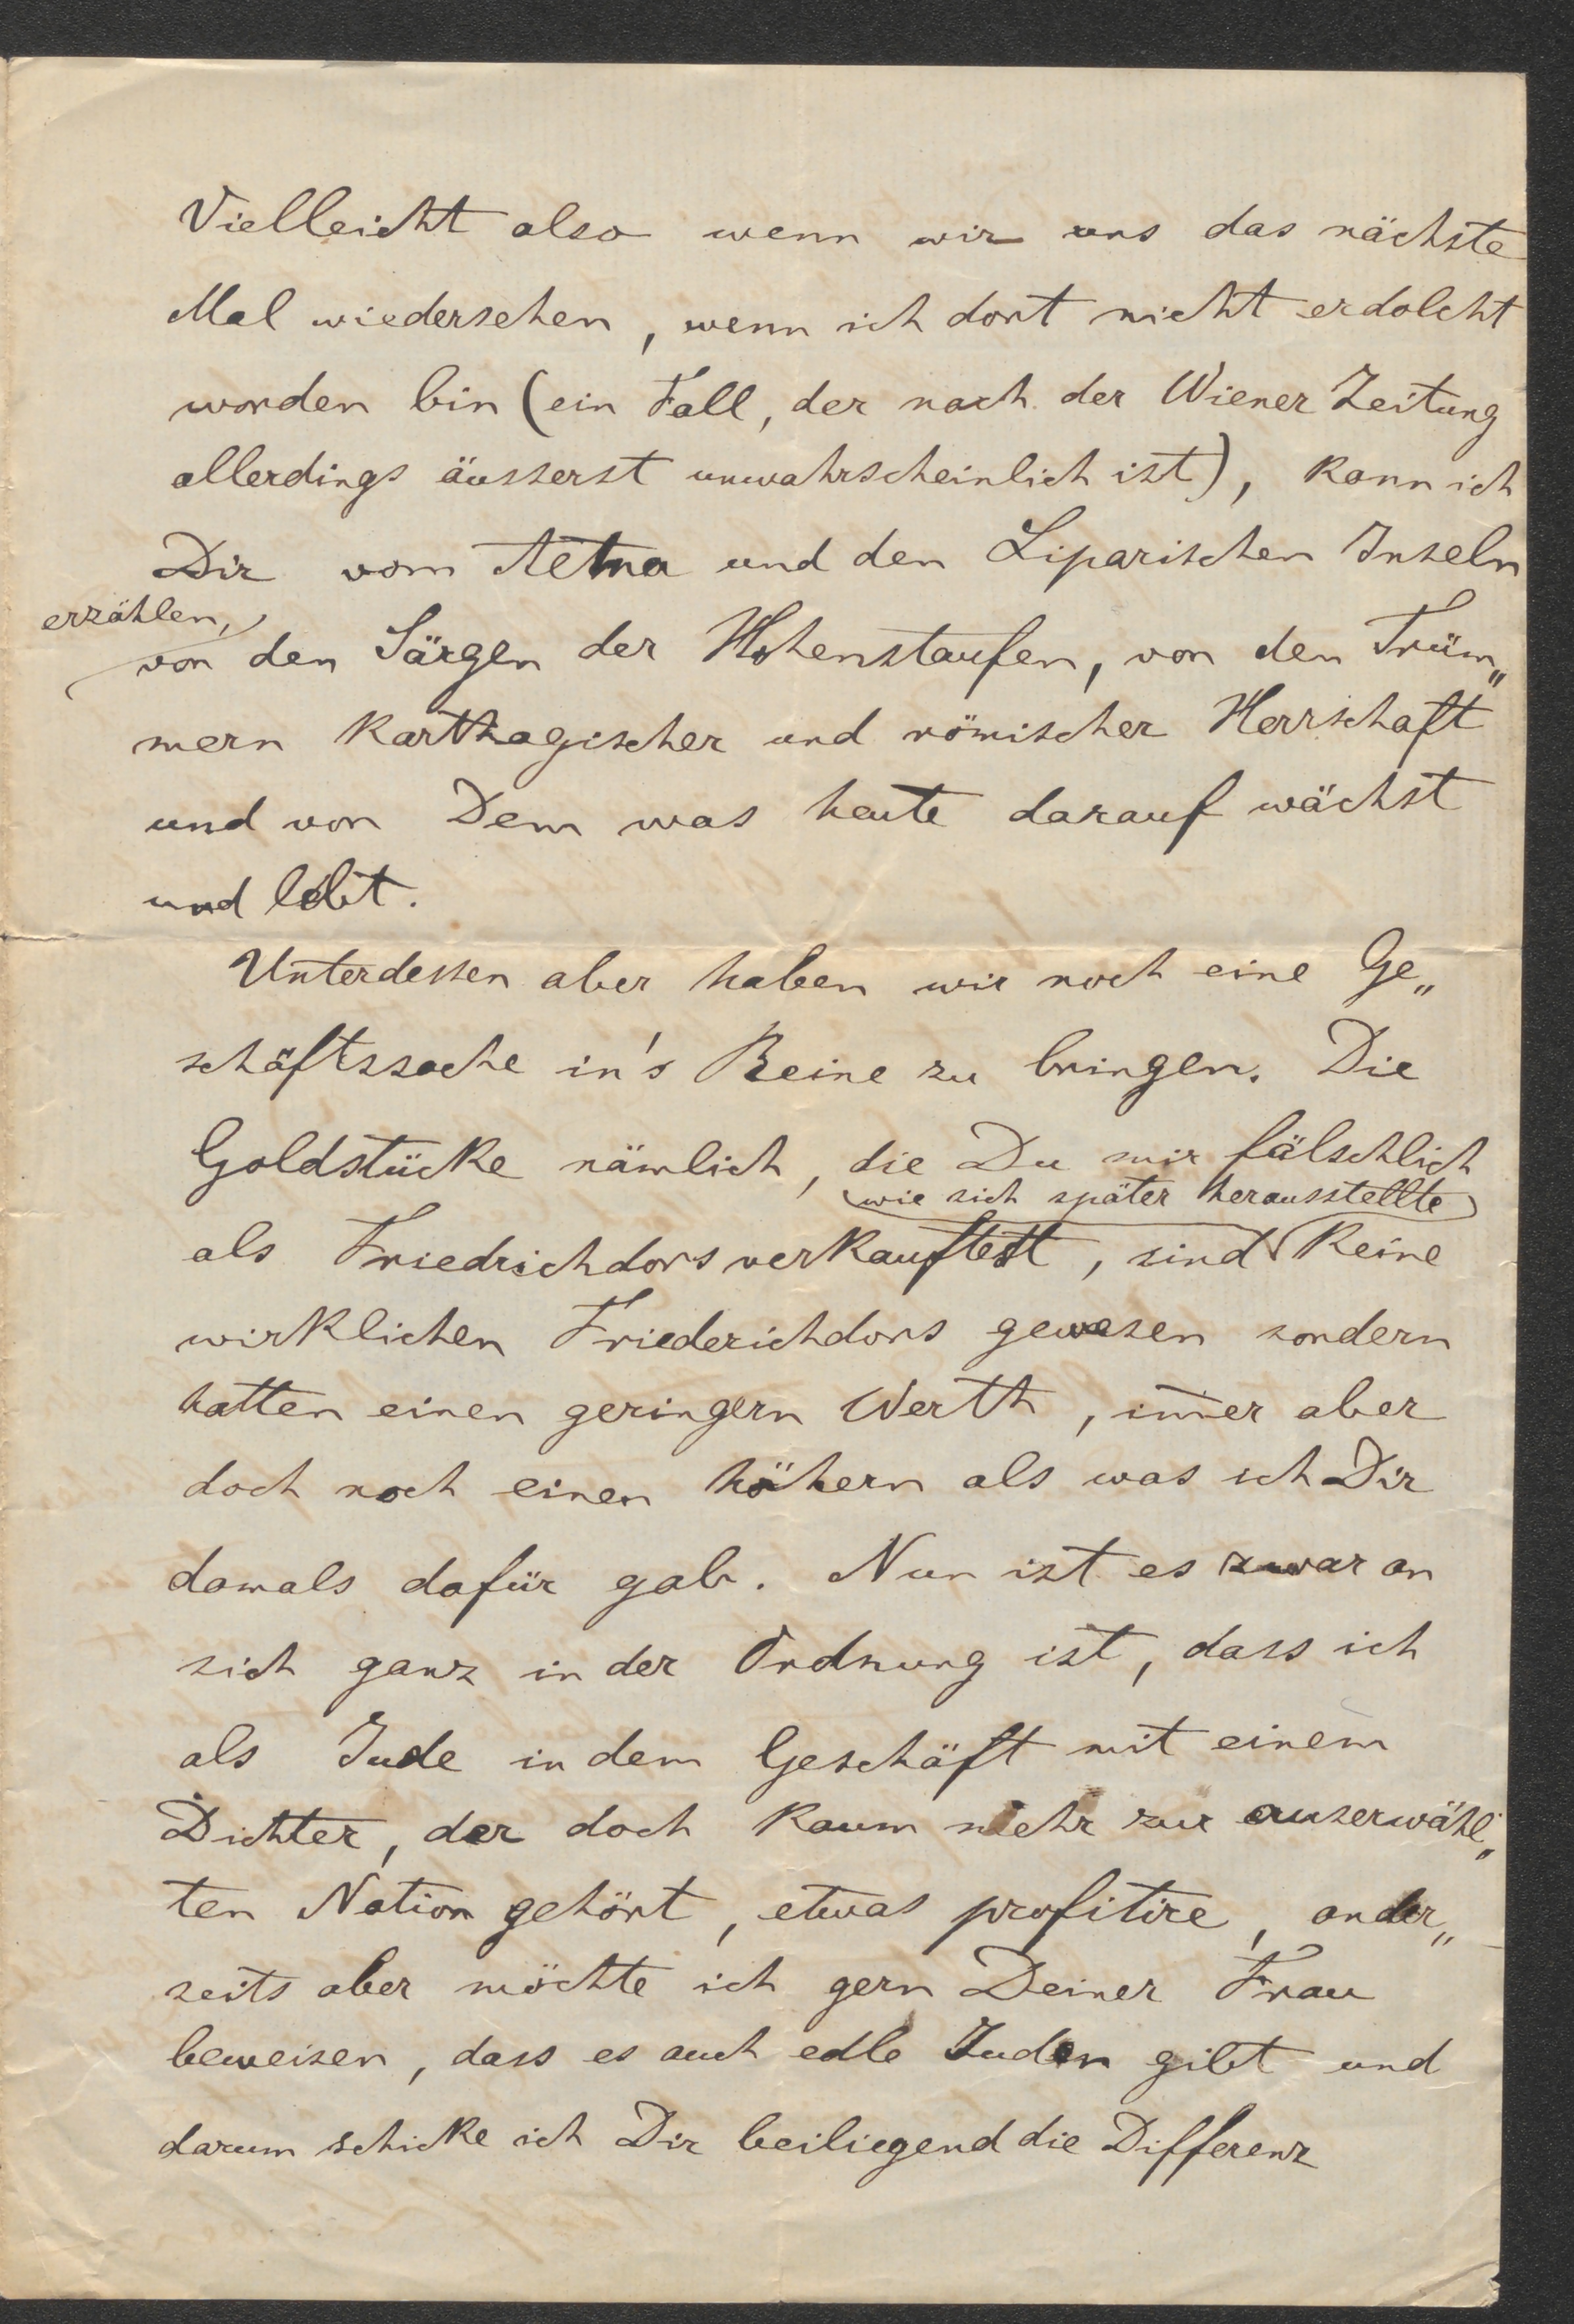 Vielleicht also wenn wir uns das nächste
Mal wiedersehen, wenn ich dort nicht erdolcht
worden bin (ein Fall, der nach der Wiener Zeitung
allerdings äusserst unwahrscheinlich ist), kann ich
Dir vom Aetna und den Liparischen Inseln
erzählen,
von den Särgen der Hohenstaufen, von den Trüm„
mern karthagischer und römischer Herrschaft
und von Dem was heute darauf wächst
und lebt.
Unterdessen aber haben wir noch eine Ge„
schäftssache in's Reine zu bringen. Die
Goldstücke nämlich, die Du mir fälschlich
wie sich später herausstellte
als Friedrichdors verkauftest, sind keine
wirklichen Friederichdors gewesen sondern
hatten einen geringern Werth, im̄er aber
doch noch einen höhern als was ich Dir
damals dafür gab. Nun ist es zwar an
sich ganz in der Ordnung ist, dass ich
als Jude in dem Geschäft mit einem
Dichter, der doch kaum mehr zur auserwähl„
ten Nation gehört, etwas profitire, ander„
seits aber möchte ich gern Deiner Frau
beweisen, dass es auch edle Juden gibt und
darum schicke ich Dir beiliegend die Differenz